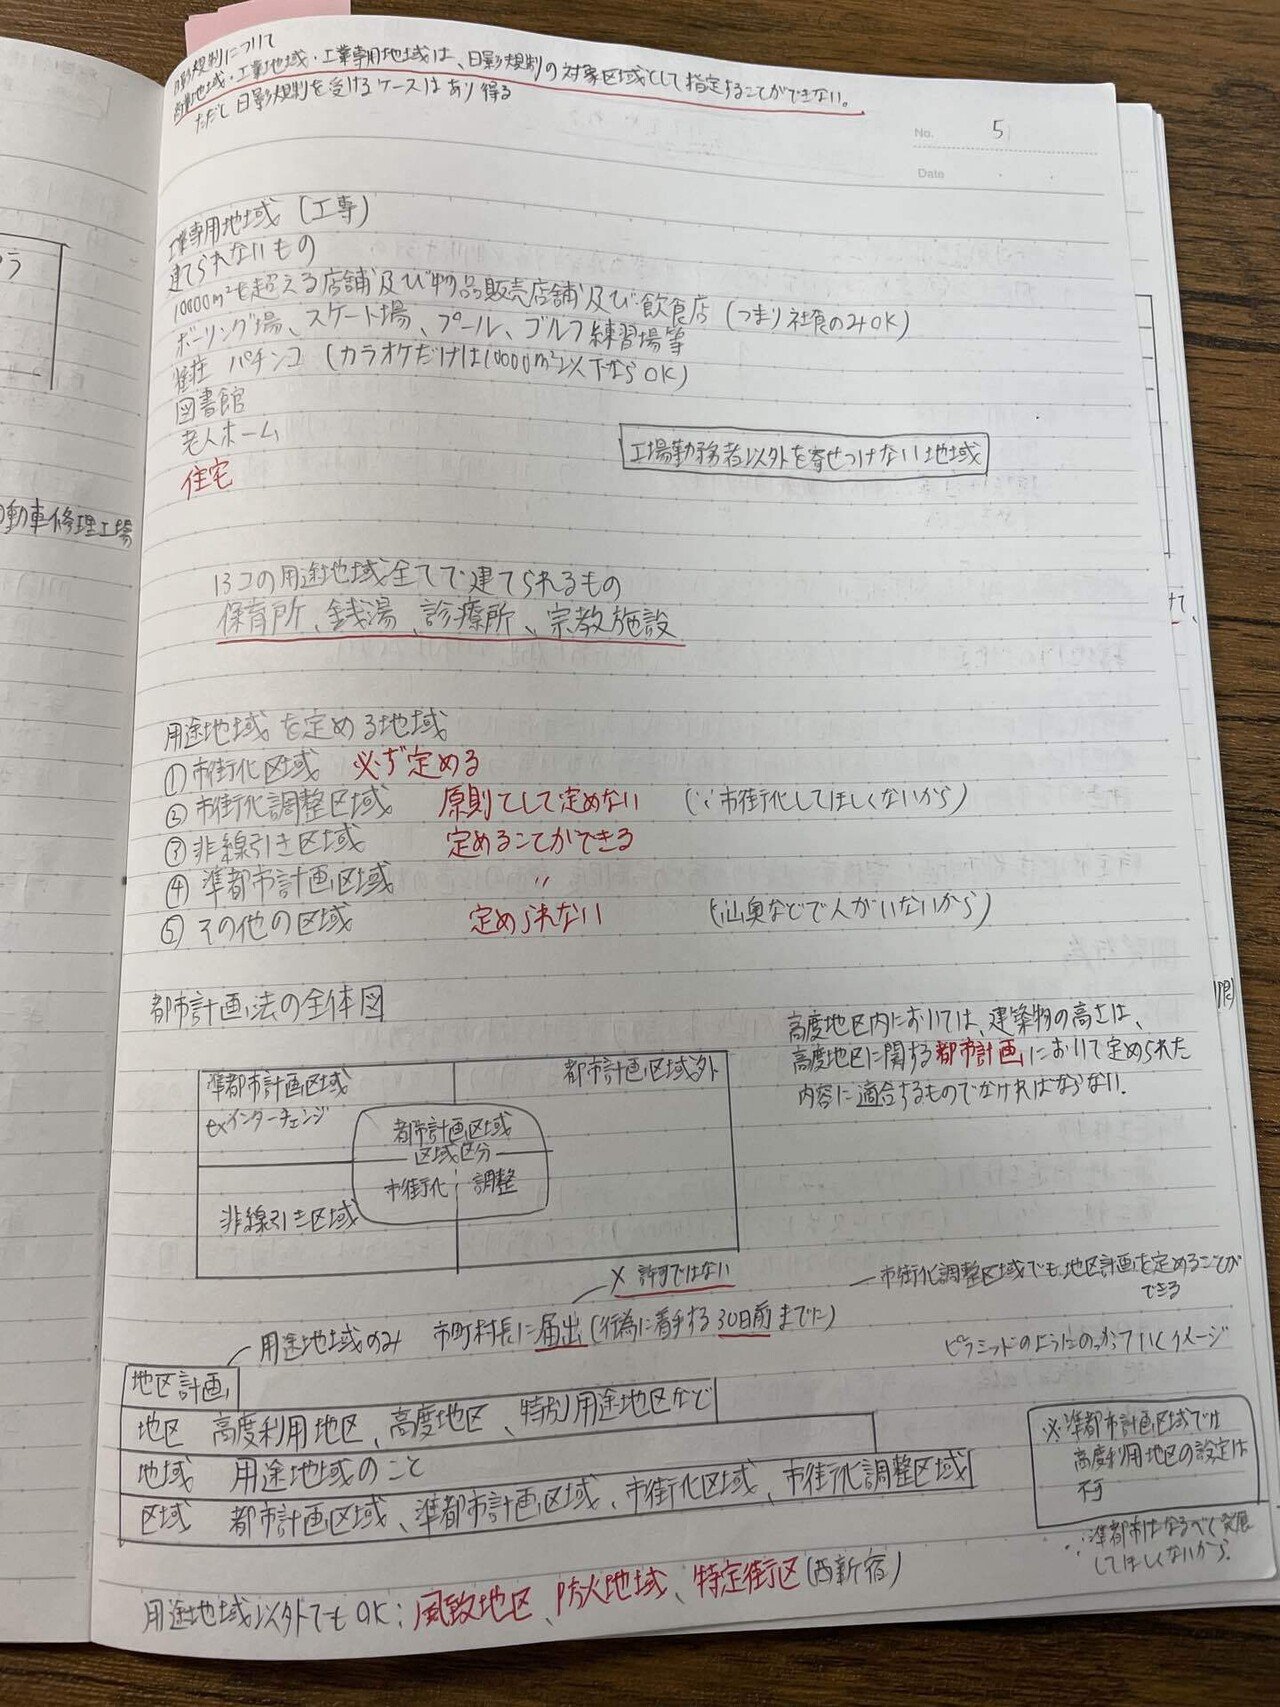 日影規制について
商業地域・工業地域・工業専用地域は、日影規制の対象区域として指定することができない。
ただし日影規制を受けるケースはあり得る
No. 5
Date
工業専用地域 (工専)
建てられないもの
10000m²を超える店舗及び物品販売店舗及び飲食店 (つまり社食のみOK)
ボーリング場、スケート場、プール、ゴルフ練習場等
麻雀 パチンコ (カラオケだけは10000m²以下ならOK)
図書館
老人ホーム
住宅
工場勤務者以外を寄せつけない地域
動車修理工場
13コの用途地域全てで建てられるもの
保育所、銭湯、診療所、宗教施設
用途地域を定める地域
① 市街化区域 必ず定める
② 市街化調整区域 原則として定めない (∵市街化してほしくないから)
③ 非線引き区域 定めることができる
④ 準都市計画区域 〃
⑤ その他の区域 定められない (山奥などで人がいないから)
都市計画法の全体図
高度地区内においては、建築物の高さは、
高度地区に関する都市計画において定められた
内容に適合するものでなければならない.
準都市計画区域
exインターチェンジ
都市計画区域外
都市計画区域
区域区分
市街化 調整
非線引き区域
× 許可ではない
市街化調整区域でも地区計画を定めることが
できる
用途地域のみ 市町村長に届出(行為に着手する30日前までに)
ピラミッドのようにのっかっていくイメージ
地区計画
地区 高度利用地区、高度地区、特別用途地区など
地域 用途地域のこと
区域 都市計画区域、準都市計画区域、市街化区域、市街化調整区域
※準都市計画区域では
高度利用地区の設定は
不可
∵準都市はなるべく発展
してほしくないから.
用途地域以外でもOK:風致地区、防火地域、特定街区(西新宿)